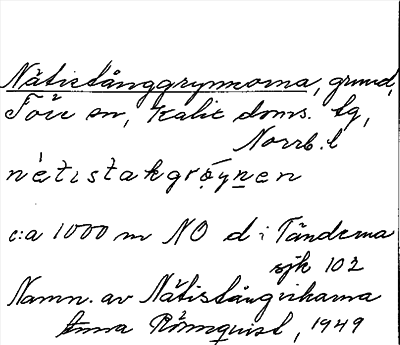 Nätistånggrynnorna, grund,
Töre sn, Kalix doms. lg,
Norrb. l
nètistakgrǫ́ynen
c:a 1000 m NO d i Tändema
sjk 102
Namn. av Nätistångvikarna
Anna Römquist, 1949